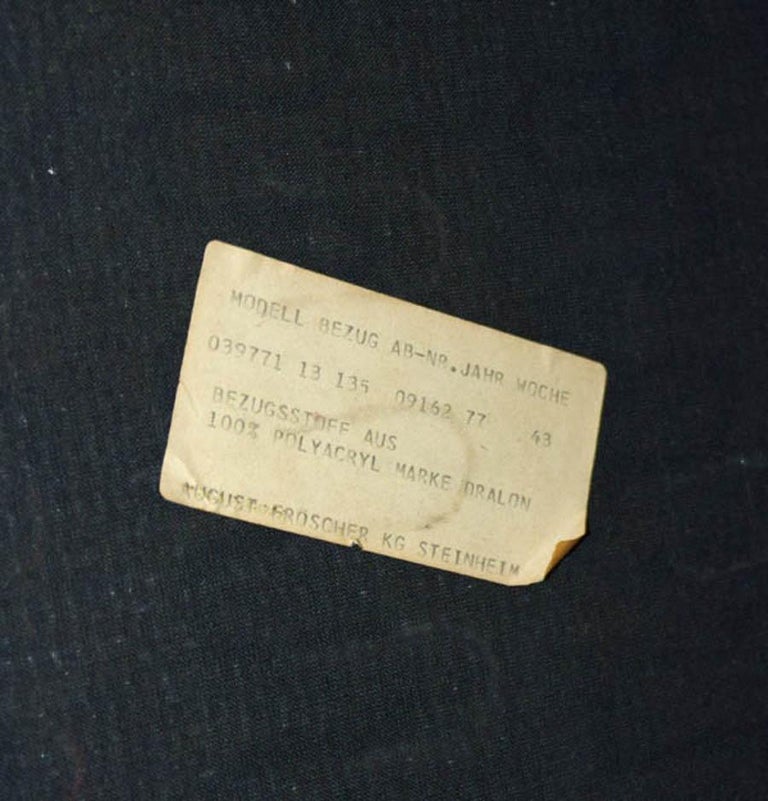 MODELL BEZUG AB-NR.JAHR WOCHE
039771 13 135 09162 77 43
BEZUGSSTOFF AUS
100% POLYACRYL MARKE DRALON
AUGUST FRÖSCHER KG STEINHEIM